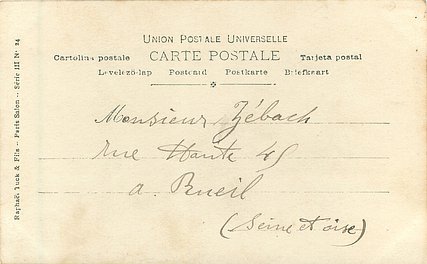 UNION POSTALE UNIVERSELLE
CARTE POSTALE
Cartolina postale
Tarjeta postal
Levelező-lap Postcard Postkarte Briefkaart
Monsieur Zébach
rue Haute 45
a Rueil
(Seine et oise)
Raphael Tuck & Fils - Paris Salon - Série III No 24